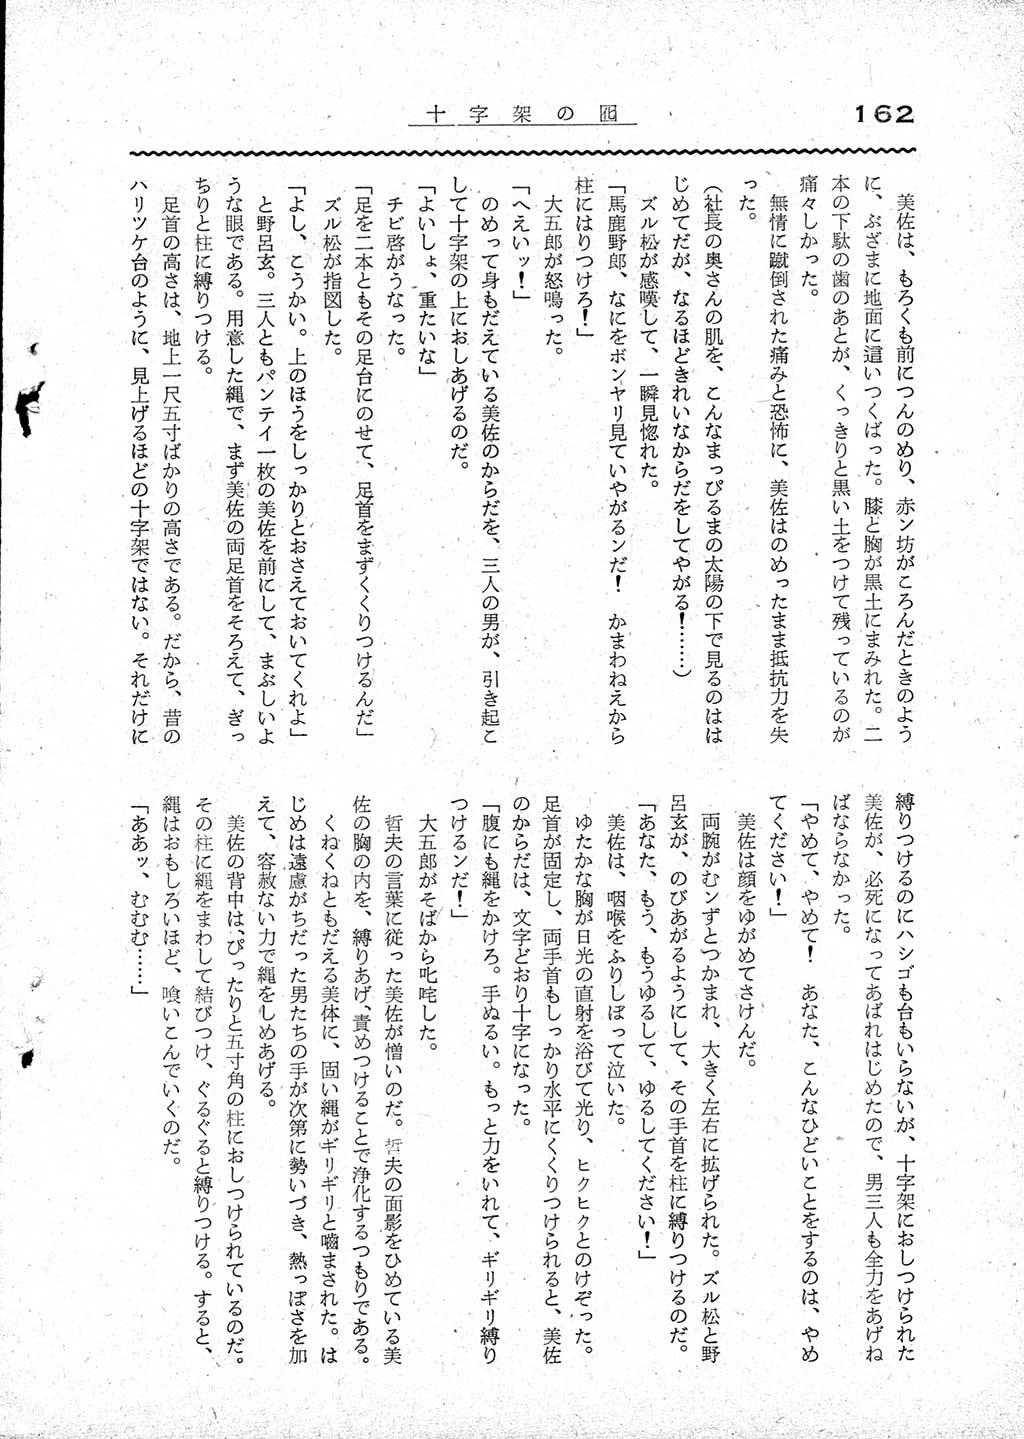 十字架の囮
162
美佐は、もろくも前につんのめり、赤ン坊がころんだときのよう
に、ぶざまに地面に這いつくばった。膝と胸が黒土にまみれた。二
本の下駄の歯のあとが、くっきりと黒い土をつけて残っているのが
痛々しかった。
無情に蹴倒された痛みと恐怖に、美佐はのめったまま抵抗力を失
った。
（社長の奥さんの肌を、こんなまっぴるまの太陽の下で見るのはは
じめてだが、なるほどきれいなからだをしてやがる！………）
ズル松が感嘆して、一瞬見惚れた。
「馬鹿野郎、なにをボンヤリ見ていやがるンだ！　かまわねえから
柱にはりつけろ！」
大五郎が怒鳴った。
「へえいッ！」
のめって身もだえている美佐のからだを、三人の男が、引き起こ
して十字架の上におしあげるのだ。
「よいしょ、重たいな」
チビ啓がうなった。
「足を二本ともその足台にのせて、足首をまずくくりつけるんだ」
ズル松が指図した。
「よし、こうかい。上のほうをしっかりとおさえておいてくれよ」
と野呂玄。三人ともパンテイ一枚の美佐を前にして、まぶしいよ
うな眼である。用意した縄で、まず美佐の両足首をそろえて、ぎっ
ちりと柱に縛りつける。
足首の高さは、地上一尺五寸ばかりの高さである。だから、昔の
ハリツケ台のように、見上げるほどの十字架ではない。それだけに
縛りつけるのにハシゴも台もいらないが、十字架におしつけられた
美佐が、必死になってあばれはじめたので、男三人も全力をあげね
ばならなかった。
「やめて、やめて！　あなた、こんなひどいことをするのは、やめ
てください！」
美佐は顔をゆがめてさけんだ。
両腕がむンずとつかまれ、大きく左右に拡げられた。ズル松と野
呂玄が、のびあがるようにして、その手首を柱に縛りつけるのだ。
「あなた、もう、もうゆるして、ゆるしてください！」
美佐は、咽喉をふりしぼって泣いた。
ゆたかな胸が日光の直射を浴びて光り、ヒクヒクとのけぞった。
足首が固定し、両手首もしっかり水平にくくりつけられると、美佐
のからだは、文字どおり十字になった。
「腹にも縄をかけろ。手ぬるい。もっと力をいれて、ギリギリ縛り
つけるンだ！」
大五郎がそばから叱咤した。
哲夫の言葉に従った美佐が憎いのだ。哲夫の面影をひめている美
佐の胸の内を、縛りあげ、責めつけることで浄化するつもりである。
くねくねともだえる美体に、固い縄がギリギリと嚙まされた。は
じめは遠慮がちだった男たちの手が次第に勢いづき、熱っぽさを加
えて、容赦ない力で縄をしめあげる。
美佐の背中は、ぴったりと五寸角の柱におしつけられているのだ。
その柱に縄をまわして結びつけ、ぐるぐると縛りつける。すると、
縄はおもしろいほど、喰いこんでいくのだ。
「ああッ、むむむ……」